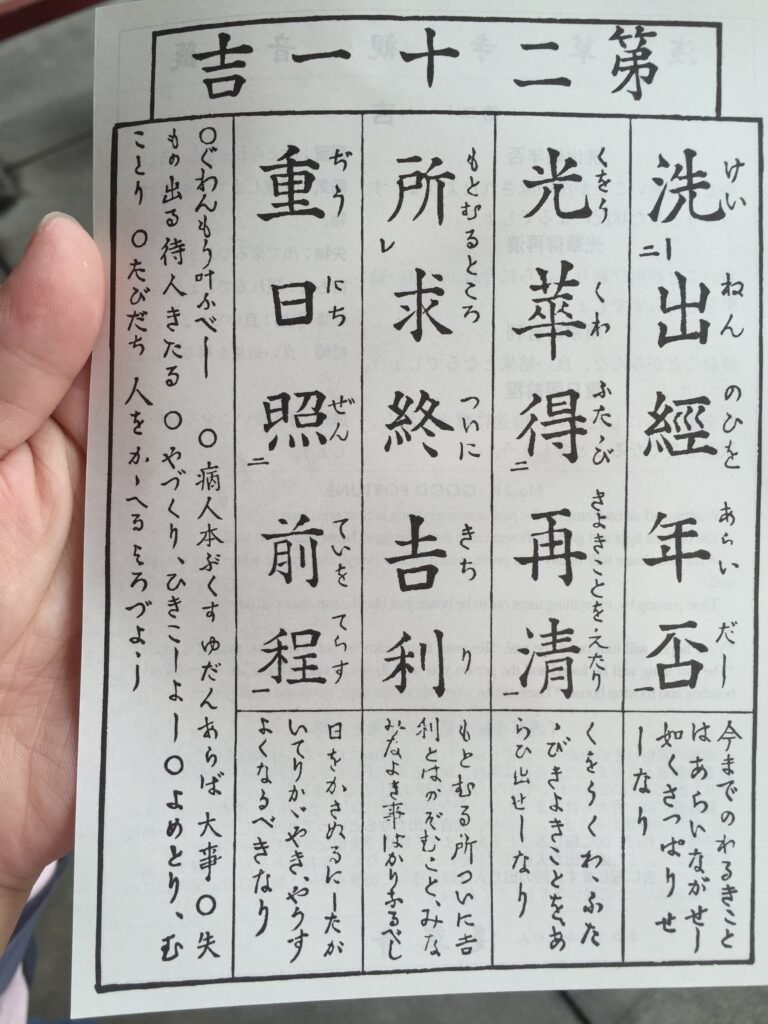 第二十一吉
洗出經年否
けい ねん のひを あらい だし
今までのわるきこと
はあらいながせし
如さつぱりせ
しなり
光華得再清
くをう くわ ふたゝび きよきことを えたり
くをうくわふた
ゝびきよきことを、あ
らひ出せしなり
所求終吉利
もとむるところ ついに きち り
もとむる所ついに吉
利とはのぞむこと、みな
みなよき事ばかりなるべし
重日照前程
ぢう にち ぜん ていを てらす
日をかさぬるにしたが
いてりかゞやき、やうす
よくなるべきなり
○ぐわんもうけふべし ○病人本ぶくす ゆだんあらば 大事 ○失
もの出る待人きたる ○やづくり、ひきこしよし ○よめとり、む
ことり ○たびだち 人をかゝへるよろづよし